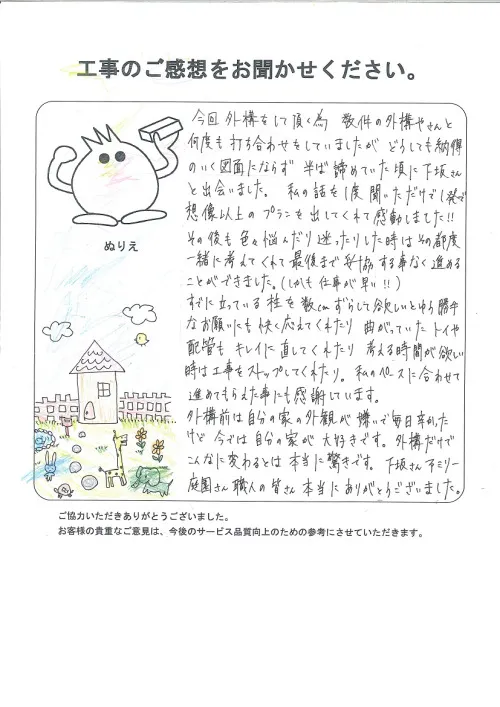 工事のご感想をお聞かせください。
今回外構をして頂く為 数件の外構やさんと
何度も打ち合わせをしていましたが どうしても納得
のいく図面にならず 半ば諦めていた頃に下坂さん
と出会いました。 私の話を1度聞いただけで1発で
想像以上のプランを出してくれて感動しました!!
その後も色々悩んだり迷ったりした時はその都度
一緒に考えてくれて最後まで妥協する事なく進める
ことができました。(しかも仕事が早い!!)
すでに立っている柱を数cmずらして欲しいとゆう勝手
なお願いにも快く応えてくれたり 曲がっていたトイや
配管も キレイに直してくれたり 考える時間が欲しい
時は工事をストップしてくれたり。私のペースに合わせて
進めてもらえた事にも感謝しています。
外構前は自分の家の外観が嫌いで毎日辛かった
けど 今では自分の家が大好きです。外構だけで
こんなに変わるとは本当に驚きです。下坂さん ファミリー
庭園さん 職人の皆さん 本当にありがとうございました。
ぬりえ
ご協力いただきありがとうございました。
お客様の貴重なご意見は、今後のサービス品質向上のための参考にさせていただきます。